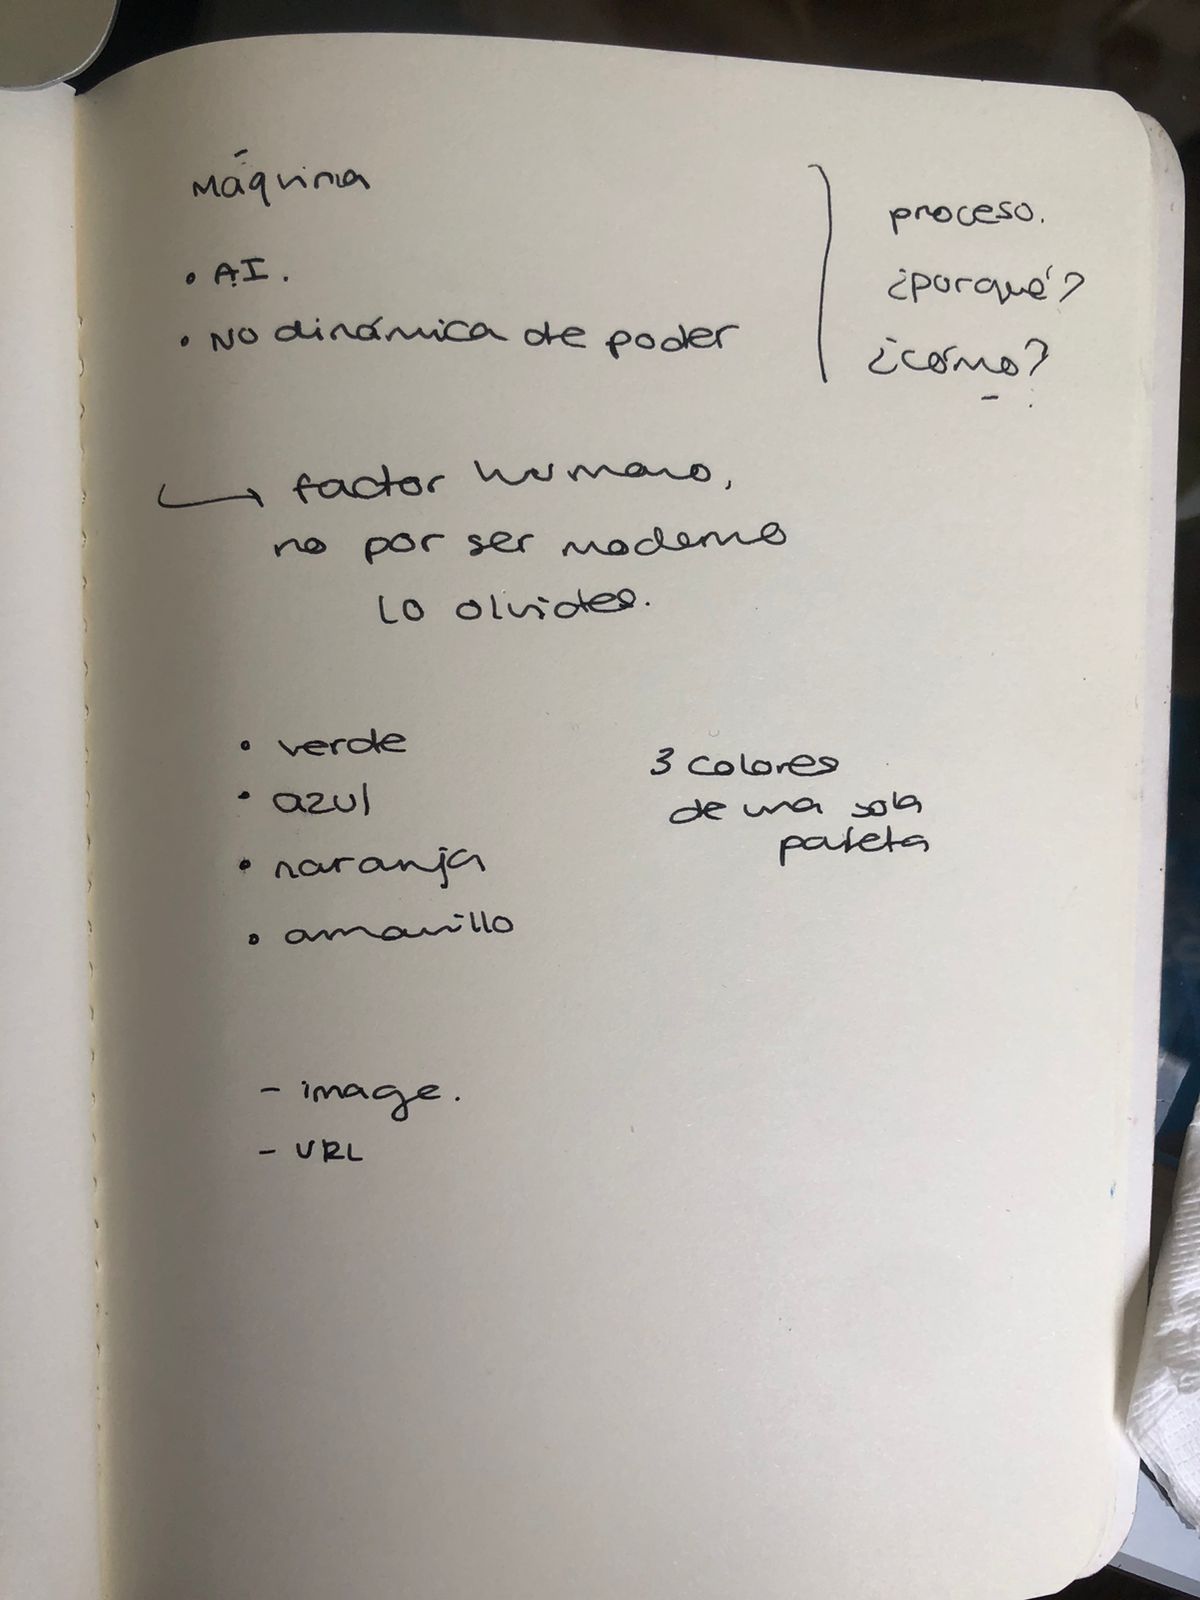 Máquina
• AI.
• No dinámica de poder
proceso.
¿porqué?
¿cómo?
factor humano,
no por ser moderno
lo olvides.
• verde
• azul
• naranja
• amarillo
3 colores
de una sola
paleta
- image.
- URL